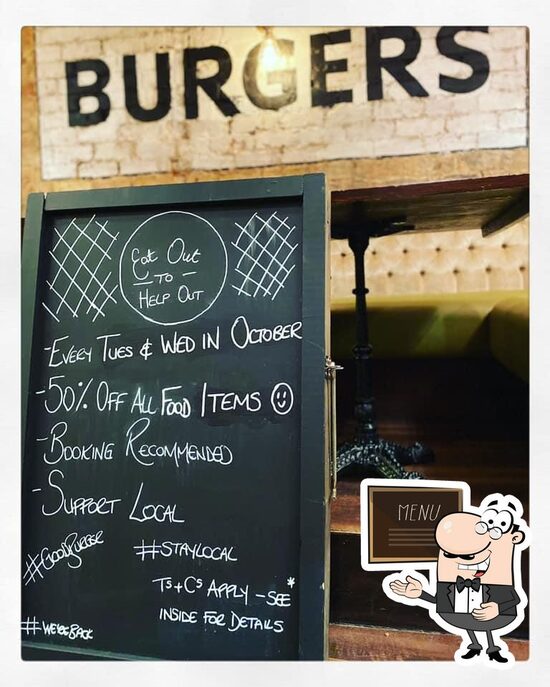 BURGERS
Eat Out
- TO -
HELP OUT
-EVERY TUES & WED IN OCTOBER
-50% OFF ALL FOOD ITEMS
-BOOKING RECOMMENDED
-SUPPORT LOCAL
#GOODBURGER
#STAYLOCAL
Ts+Cs APPLY - SEE *
INSIDE FOR DETAILS
#WEREBACK
MENU